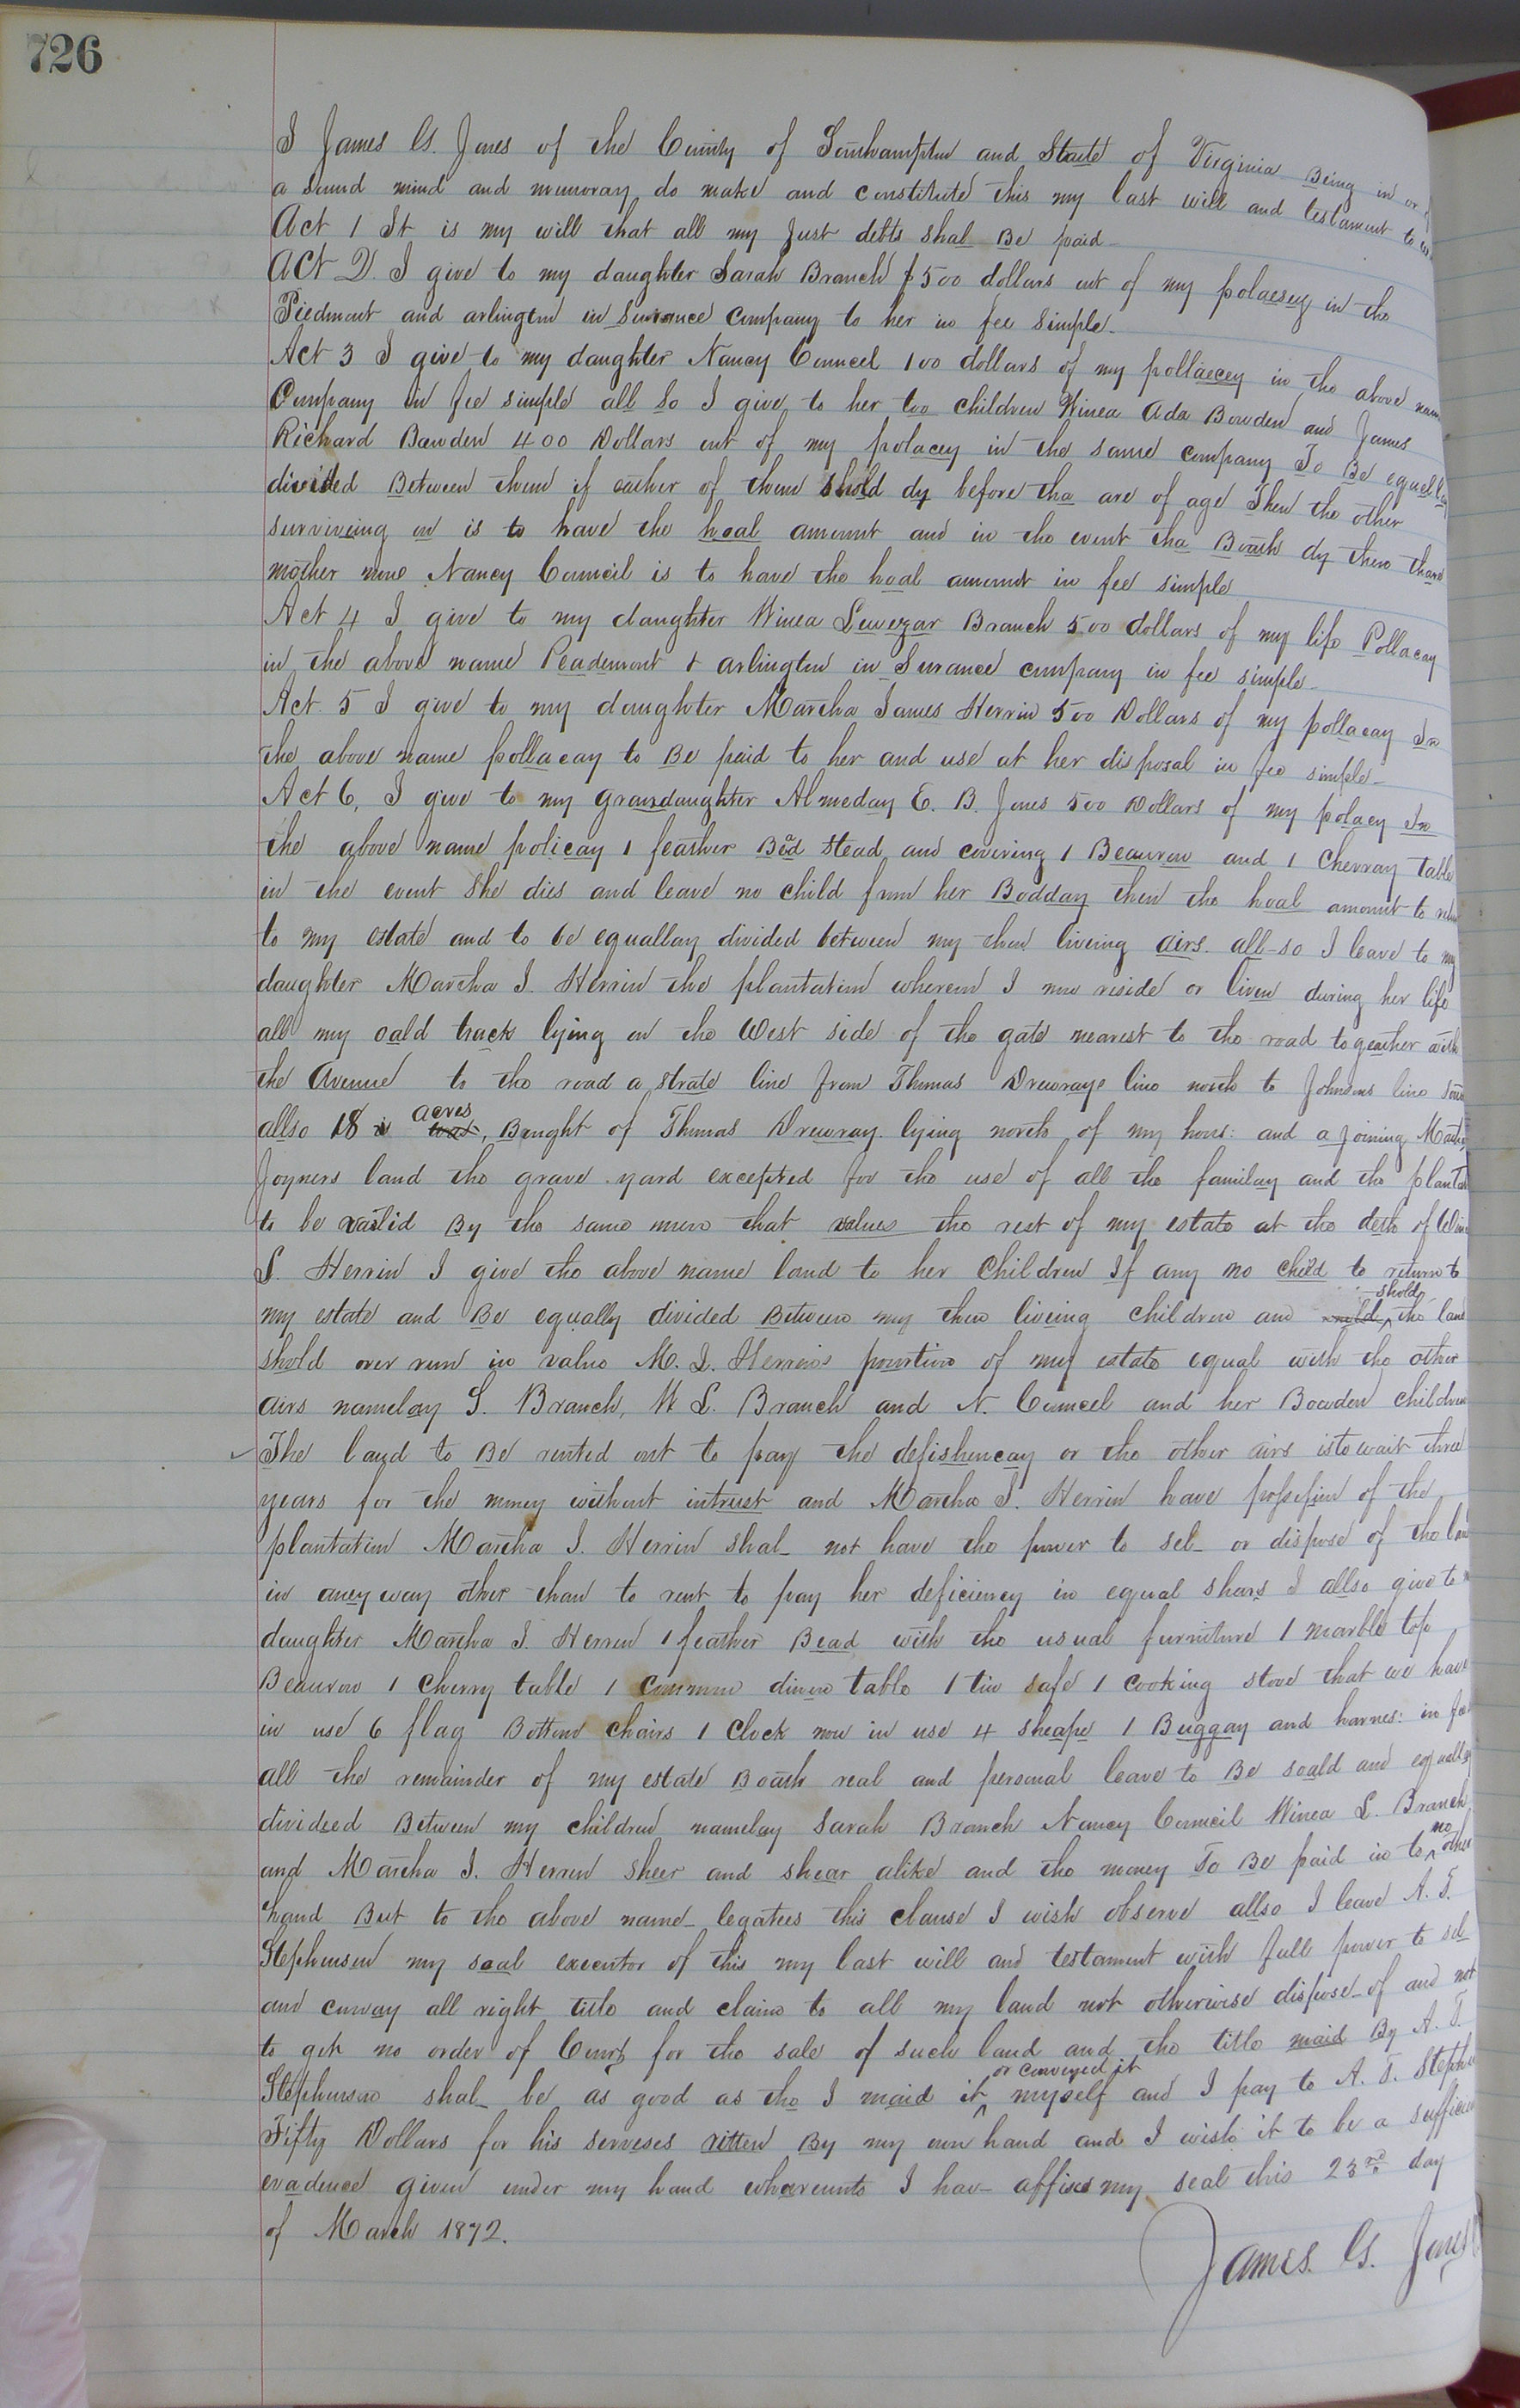 726
I James G. Jones of the County of Southampton and State of Virginia Being in or
a sound mind and memoray do make and constitute this my last will and testament to
Act 1 It is my will that all my Just debts shal Be paid
ACt 2. I give to my daughter Sarah Branch $500 dollars out of my polaesey in the
Piedmont and arlington in Surance Company to her in fee simple.
Act 3 I give to my daughter Nancy Councel 100 dollars of my pollaecey in the above name
Company in fee simple all So I give to her too children Winea Ada Bowden and James
Richard Bawden 400 Dollars out of my polacey in the same company To Be equelley
divided Between them if eather of them shold dy before tha are of age Then the other
surviveing on is to have the hoal amount and in the event tha Boath dy then thare
mother mine Nancy Council is to have the hoal amount in fee simple
Act 4 I give to my daughter Winea Luvezar Branch 500 dollars of my life Pollacay
in the above name Peademont & arlington in Surance company in fee simple
Act 5 I give to my daughter Martha James Herrin 500 Dollars of my pollacay In
the above name pollacay to Be paid to her and use at her disposal in fee simple
Act 6, I give to my grandaughter Almeday E. B. Jones 500 Dollars of my polacy In
the above name policay 1 feather Bead stead and covering 1 Beaurow and 1 Cherray table
in the event she dies and leave no child from her Bodday then the hoal amount to
to my estate and to be equallay divided between my then liveing airs. all-so I leave to my
daughter Martha J. Herrin the plantation wherein I now reside or liven during her life
all my oald track lying on the West side of the gate nearest to the road togeather with
the Avenue to the road a strate line from Thomas Drewrays line north to Johnsons line
allso 18 acres, Bought of Thomas Drewray. lying north of my hous: and a joining
Joyners land the grave yard excepted for the use of all the familay and the
to be valid By the same men that values the rest of my estate at the deth of
J. Herrin I give the above name land to her Children If any no child to return to
my estate and Be equally divided Between my then liveing children and shold the land
shold over run in value M. J. Herrins pourtion of my estate equal with the other
airs namelay S. Branch, W L. Branch and N. Councel and her Bowden children
The land to Be rented out to pay the defishencay or the other airs is to wait three
years for the money without intrust and Martha J. Herrin have possession of the
plantation Martha J. Herrin shal not have the power to sel or dispose of the land
in aney way other than to rent to pay her deficiency in equal shars I allso give to
daughter Martha J. Herrin 1 feather Bead with the usual furniture 1 marble tope
Beaurow 1 Cherry table 1 Common dinen table 1 tin safe 1 cooking stove that we have
in use 6 flag Bottom chairs 1 Clock now in use 4 sheape 1 Buggay and harnes: in fee
all the remainder of my estate Boath real and personal leave to Be soald and equalley
divideed Between my children namelay Sarah Branch Nancy Council Winea L. Branch
and Martha J. Herrin sheer and shear alike and the money To Be paid in to no other
hand But to the above name legatees this clause I wish observe allso I leave A. T.
Stephenson my soal executor of this my last will and testament with full power to sel
and cuway all right title and claim to all my land not otherwise dispose of and not
to get no order of Court for the sale of such land and the title maid By A. T.
Stephenson shal be as good as tho I maid it or conveyed it myself and I pay to A. T.
Fifty Dollars for his serveses ritten By my own hand and I wish it to be a sufficien
evadence given under my hand wharunto I hav affixed my seal this 23rd day
of March 1872.
James. G. Jones